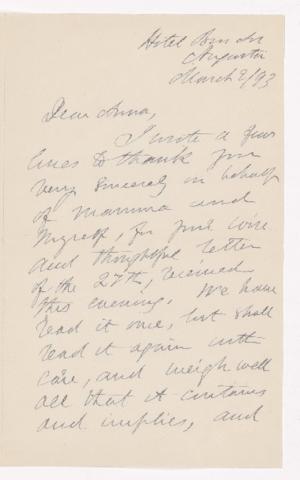 Hotel Bon Air
Augusta
March 2/93
Dear Anna,
I wrote a few
lines to thank you
very sincerely in behalf
of mamma and
myself, for your wise
and thoughtful letter
of the 27th, received
this evening. We have
read it once, but shall
read it again with
care, and weigh well
all that it contains
and implies, and